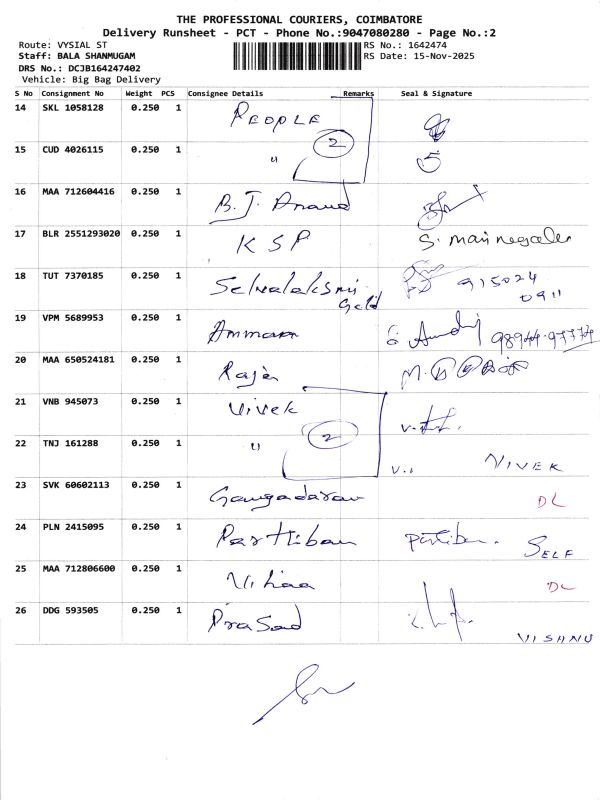 THE PROFESSIONAL COURIERS, COIMBATORE
Delivery Runsheet - PCT - Phone No.:9047080280 - Page No.:2
Route: VYSIAL ST RS No.: 1642474
Staff: BALA SHANMUGAM RS Date: 15-Nov-2025
DRS No.: DCJB164247402
Vehicle: Big Bag Delivery
S No Consignment No Weight PCS Consignee Details Remarks Seal & Signature
14 SKL 1058128 0.250 1 PEOPLE
2
15 CUD 4026115 0.250 1 "
16 MAA 712604416 0.250 1 B.J. Anand
17 BLR 2551293020 0.250 1 KSP
18 TUT 7370185 0.250 1 Selvalaksmi Gold 915024 0911
19 VPM 5689953 0.250 1 Amman
20 MAA 650524181 0.250 1 Raja
21 VNB 945073 0.250 1 Vivek
2
22 TNJ 161288 0.250 1 " VIVEK
23 SVK 60602113 0.250 1 Gangadaran DL
24 PLN 2415095 0.250 1 Parthiban SELF
25 MAA 712806600 0.250 1 DL
26 DDG 593505 0.250 1 Prasad VISHNU